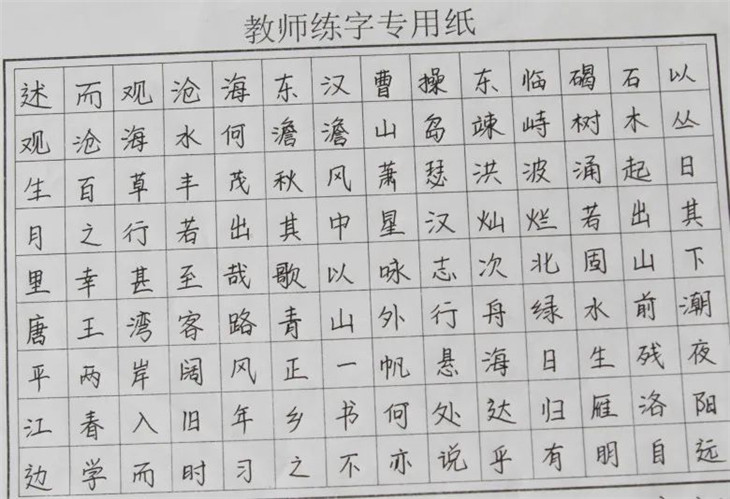 教师练字专用纸
述而观沧海东汉曹操东临碣石以
观沧海水何澹澹山岛竦峙树木丛
生百草丰茂秋风萧瑟洪波涌起日
月之行若出其中星汉灿烂若出其
里幸甚至哉歌以咏志次北固山下
唐王湾客路青山外行舟绿水前潮
平两岸阔风正一帆悬海日生残夜
江春入旧年乡书何处达归雁洛阳
边学而时习之不亦说乎有明自远